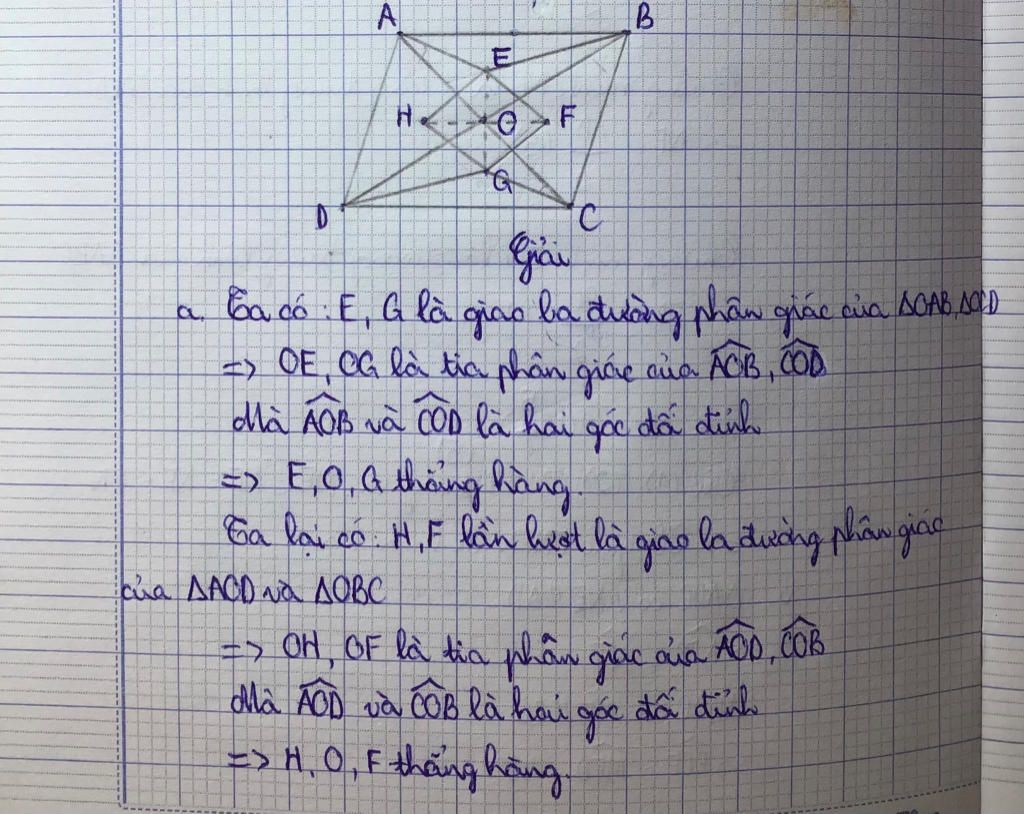 A B
E
H O F
G
D C
Giải
a. Ta có : E, G là giao ba đường phân giác của ΔOAB, ΔOCD
=> OE, OG là tia phân giác của \widehat{AOB}, \widehat{COD}
Mà \widehat{AOB} và \widehat{COD} là hai góc đối đỉnh
=> E, O, G thẳng hàng.
Ta lại có : H, F lần lượt là giao ba đường phân giác
của ΔAOD và ΔOBC
=> OH, OF là tia phân giác của \widehat{AOD}, \widehat{COB}
Mà \widehat{AOD} và \widehat{COB} là hai góc đối đỉnh
=> H, O, F thẳng hàng.